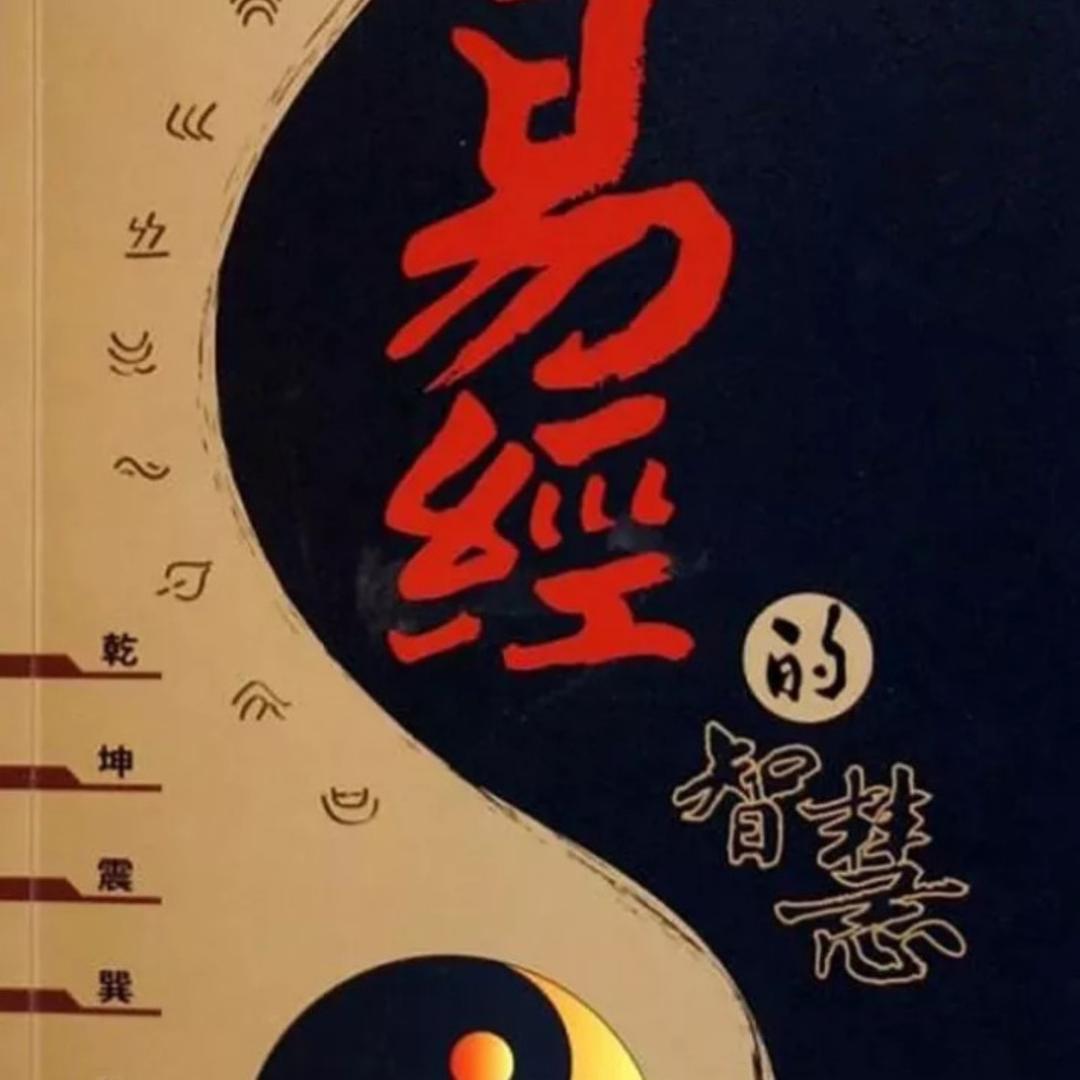 易經
的
智慧
乾
坤
震
巽